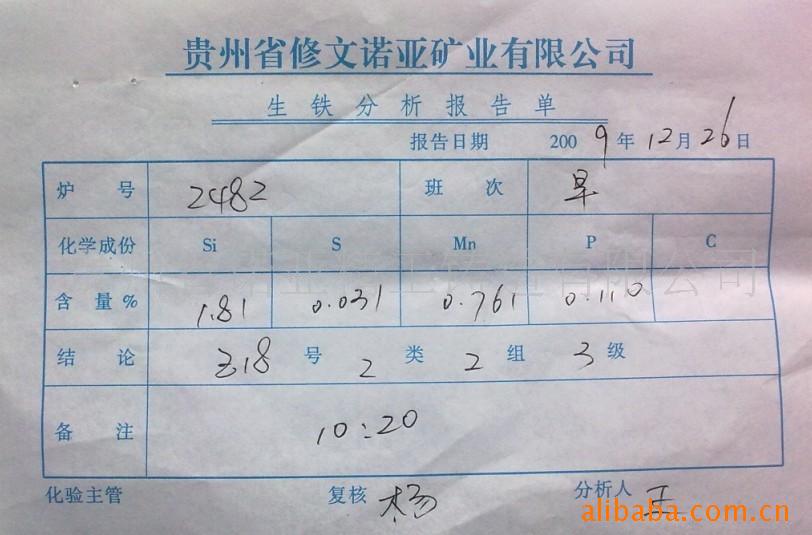 贵州省修文诺亚矿业有限公司
生铁分析报告单
报告日期 2009年12月26日
炉号 2482 班次 早
化学成份 Si S Mn P C
含量% 1.81 0.031 0.761 0.110
结论 Z18号 2类 2组 3级
备注 10:20
化验主管 复核 杨 分析人 王
alibaba.com.cn